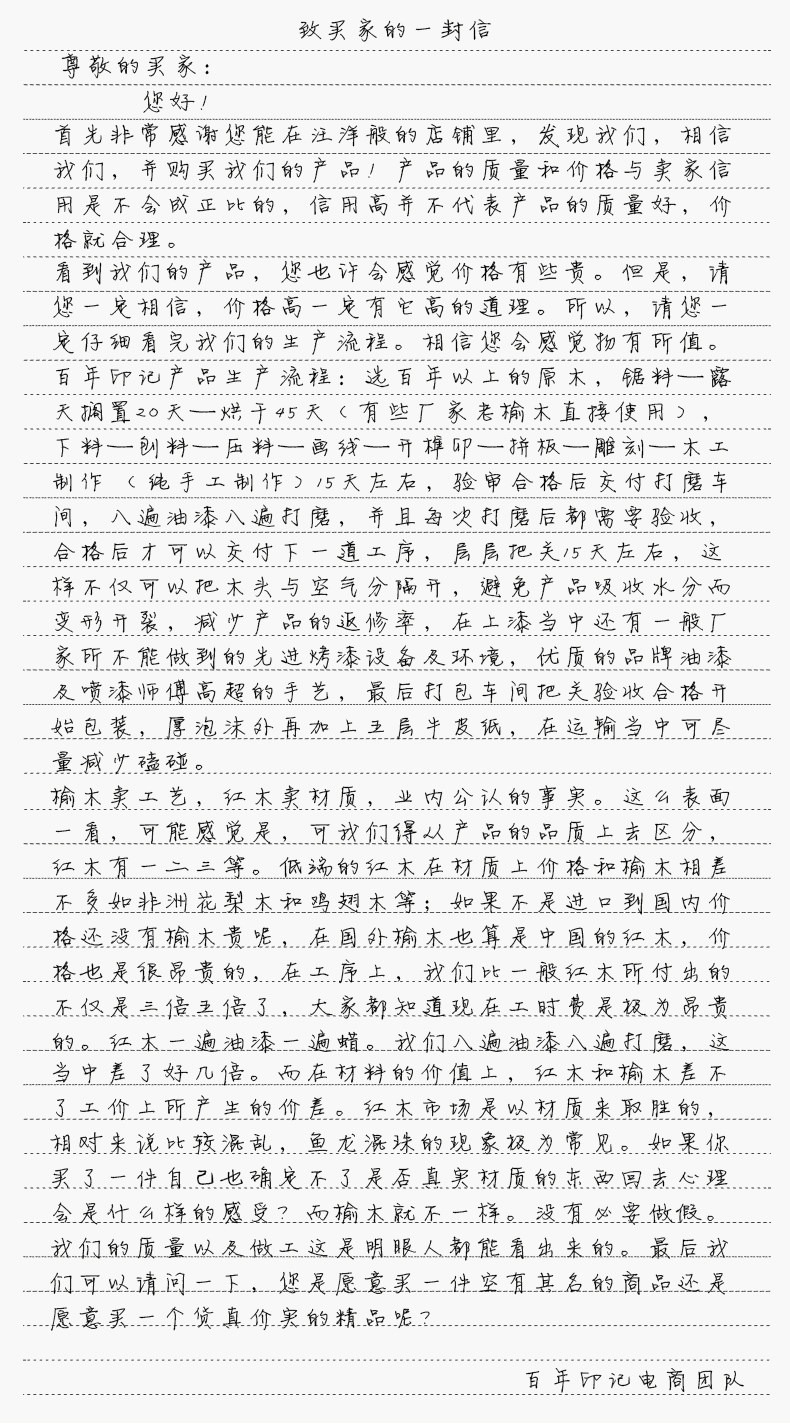 致买家的一封信
尊敬的买家：
您好！
首先非常感谢您能在汪洋般的店铺里，发现我们，相信
我们，并购买我们的产品！产品的质量和价格与卖家信
用是不会成正比的，信用高并不代表产品的质量好，价
格就合理。
看到我们的产品，您也许会感觉价格有些贵。但是，请
您一定相信，价格高一定有它高的道理。所以，请您一
定仔细看完我们的生产流程。相信您会感觉物有所值。
百年印记产品生产流程：选百年以上的原木，锯料—露
天搁置20天—烘干45天（有些厂家老榆木直接使用），
下料—刨料—压料—画线—开榫卯—拼板—雕刻—木工
制作（纯手工制作）15天左右，验审合格后交付打磨车
间，八遍油漆八遍打磨，并且每次打磨后都需要验收，
合格后才可以交付下一道工序，层层把关15天左右，这
样不仅可以把木头与空气分隔开，避免产品吸收水分而
变形开裂，减少产品的返修率，在上漆当中还有一般厂
家所不能做到的先进烤漆设备及环境，优质的品牌油漆
及喷漆师傅高超的手艺，最后打包车间把关验收合格开
始包装，厚泡沫外再加上五层牛皮纸，在运输当中可尽
量减少磕碰。
榆木卖工艺，红木卖材质，业内公认的事实。这么表面
一看，可能感觉是，可我们得从产品的品质上去区分，
红木有一二三等。低端的红木在材质上价格和榆木相差
不多如非洲花梨木和鸡翅木等；如果不是进口到国内价
格还没有榆木贵呢，在国外榆木也算是中国的红木，价
格也是很昂贵的，在工序上，我们比一般红木所付出的
不仅是三倍五倍了，大家都知道现在工时费是极为昂贵
的。红木一遍油漆一遍蜡。我们八遍油漆八遍打磨，这
当中差了好几倍。而在材料的价值上，红木和榆木差不
了工价上所产生的价差。红木市场是以材质来取胜的，
相对来说比较混乱，鱼龙混珠的现象极为常见。如果你
买了一件自己也确定不了是否真实材质的东西回去心理
会是什么样的感受？而榆木就不一样。没有必要做假。
我们的质量以及做工这是明眼人都能看出来的。最后我
们可以请问一下，您是愿意买一件空有其名的商品还是
愿意买一个货真价实的精品呢？
百年印记电商团队